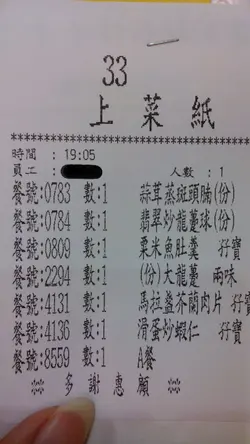 33
上菜紙
********************************
時間 : 19:05
員工 : 人數 : 1
餐號:0783 數:1 蒜茸蒸斑頭腩(份)
餐號:0784 數:1 翡翠炒龍躉球(份)
餐號:0809 數:1 粟米魚肚羹 孖寶
餐號:2294 數:1 (份)大龍躉 兩味
餐號:4131 數:1 馬拉盞芥蘭肉片 孖寶
餐號:4136 數:1 滑蛋炒蝦仁 孖寶
餐號:8559 數:1 A餐
多謝惠顧